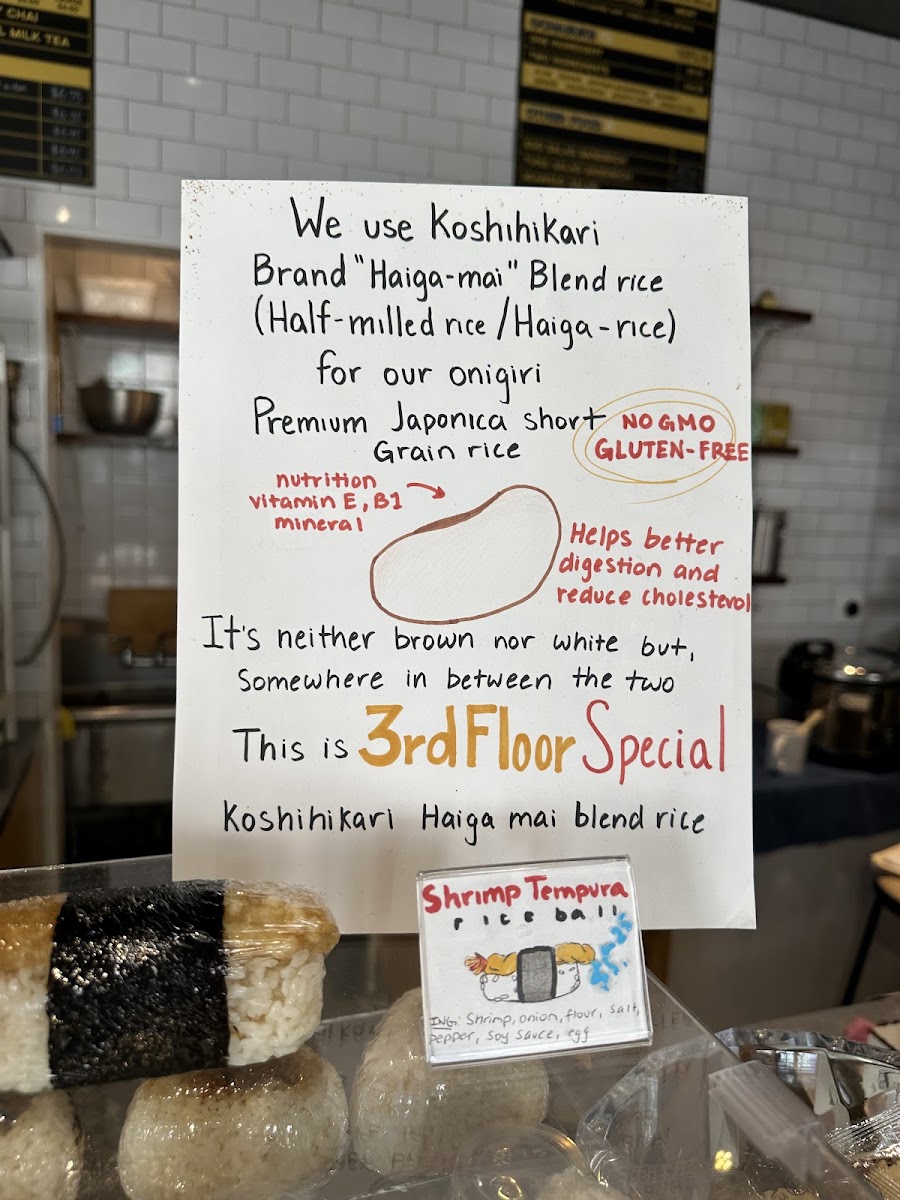 CHAI
MILK TEA
We use Koshihikari
Brand "Haiga-mai" Blend rice
(Half-milled rice / Haiga-rice)
for our onigiri
Premium Japonica short
Grain rice
NO GMO
GLUTEN-FREE
nutrition
vitamin E, B1
mineral
Helps better
digestion and
reduce cholesterol
It's neither brown nor white but,
Somewhere in between the two
This is 3rd Floor Special
Koshihikari Haiga mai blend rice
Shrimp Tempura
rice ball
ING: Shrimp, onion, flour, salt,
pepper, soy sauce, egg